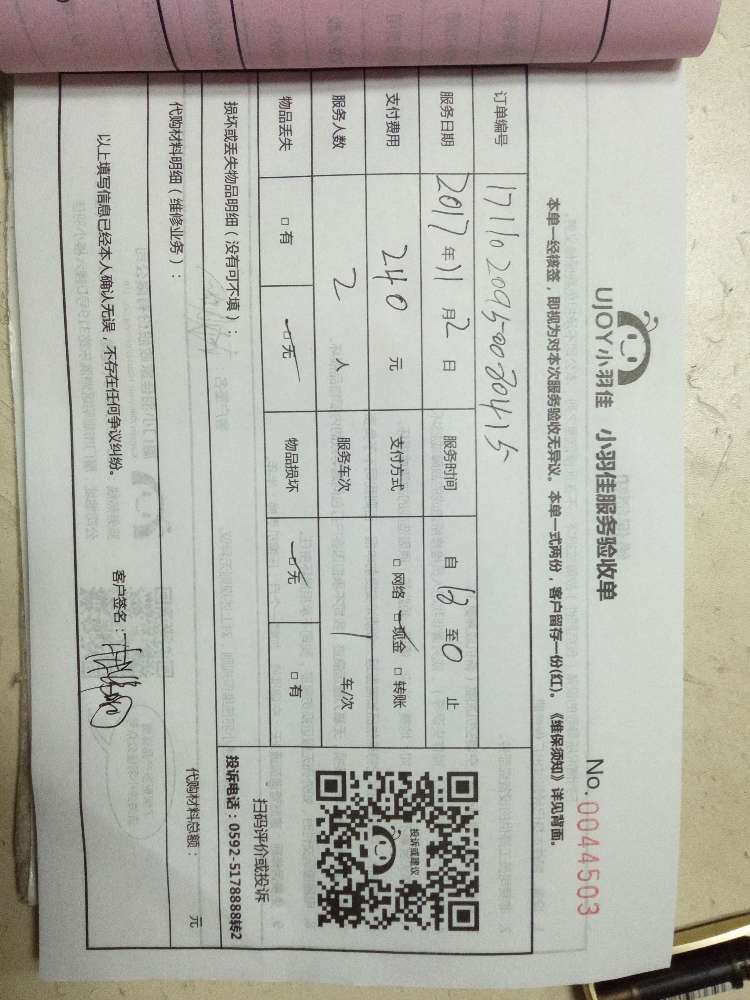 UJOY小羽佳 小羽佳服务验收单
No.0044503
本单一经核签，即视为对本次服务验收无异议。本单一式两份，客户留存一份(红)。《维保须知》详见背面。
订单编号 171102095-0070415
服务日期 2017 年 11 月 2 日 服务时间 自 18 至 0 止
支付费用 240 元 支付方式 □ 网络 □ 现金 □ 转账
服务人数 2 人 服务车次 1 车/次
物品丢失 □ 有 □ 无 物品损坏 □ 无 □ 有
投诉或建议
扫码评价或投诉
投诉电话：0592-5178888转2
损坏或丢失物品明细（没有可不填）：
代购材料明细（维修业务）： 代购材料总额： 元
以上填写信息已经本人确认无误，不存在任何争议纠纷。 客户签名：